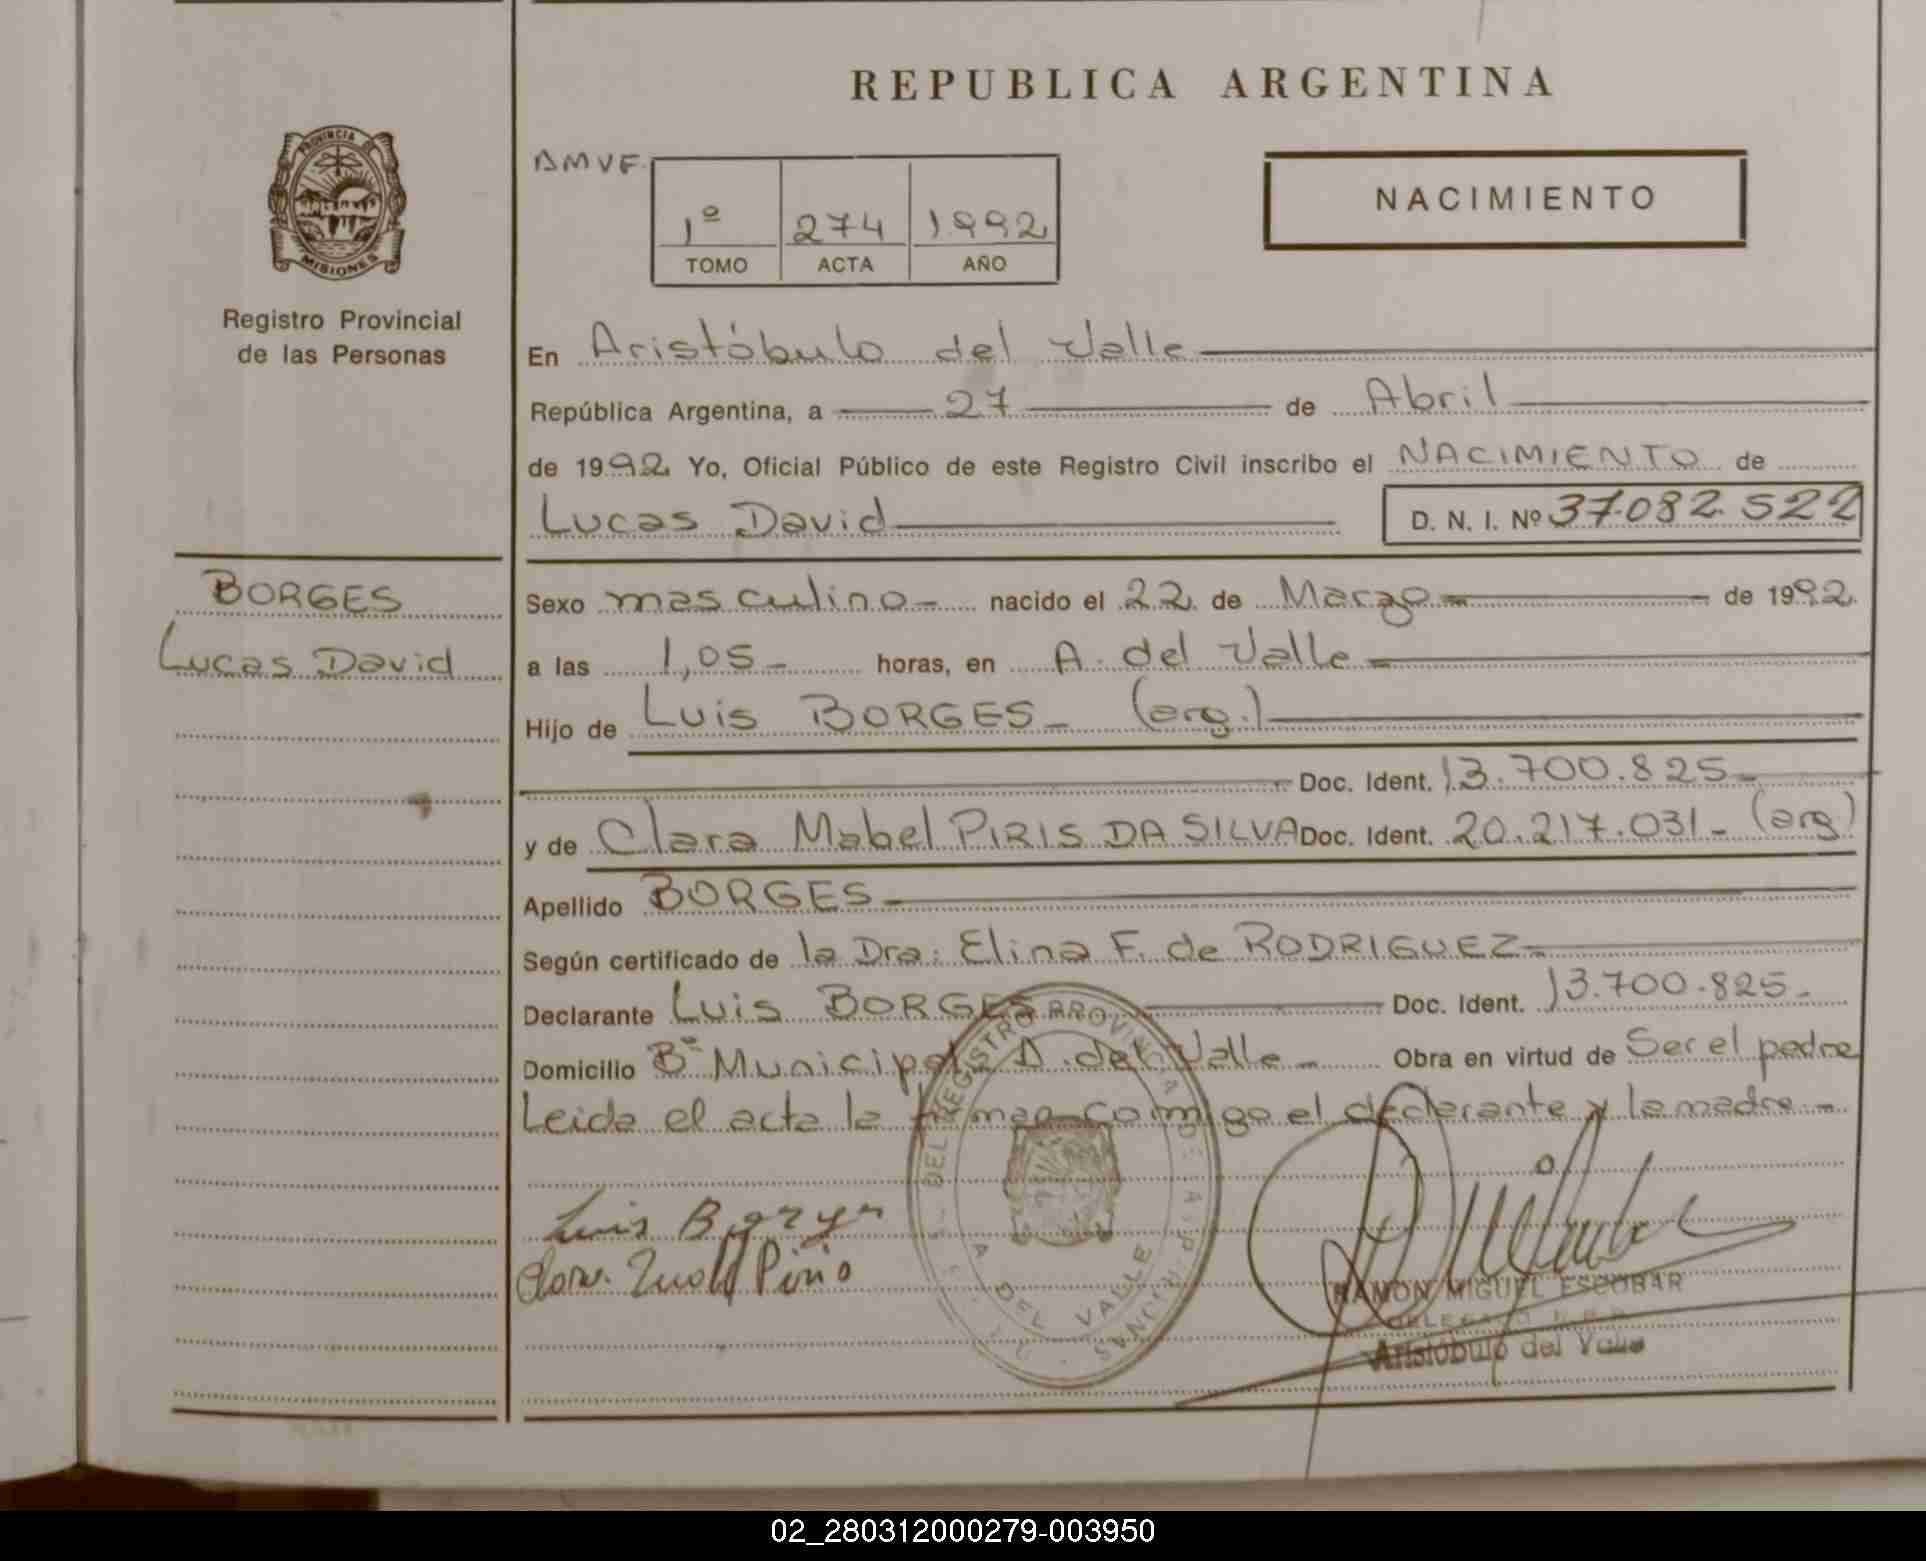 REPUBLICA ARGENTINA
PROVINCIA DE
MISIONES
Registro Provincial
de las Personas
AMVF.
1º 274 1992
TOMO ACTA AÑO
NACIMIENTO
En Aristóbulo del Valle
República Argentina, a 27 de Abril
de 1992 Yo, Oficial Público de este Registro Civil inscribo el NACIMIENTO de
Lucas David D. N. I. Nº 37.082.522
BORGES
Lucas David
Sexo masculino nacido el 22 de Marzo de 1992
a las 1,05 horas, en A. del Valle
Hijo de Luis BORGES (arg.)
Doc. Ident. 13.700.825
y de Clara Mabel PIRIS DA SILVA Doc. Ident. 20.217.031 (arg)
Apellido BORGES
Según certificado de la Dra: Elina F. de RODRIGUEZ
Declarante Luis BORGES Doc. Ident. 13.700.825
Domicilio Bº Municipal A. del Valle Obra en virtud de Ser el padre
Leida el acta la firman conmigo el declarante y la madre
DEL REGISTRO PROVINCIAL DE
DEL VALLE
Luis
RAMON MIGUEL ESCOBAR
Aristóbulo del Valle
02_280312000279-003950